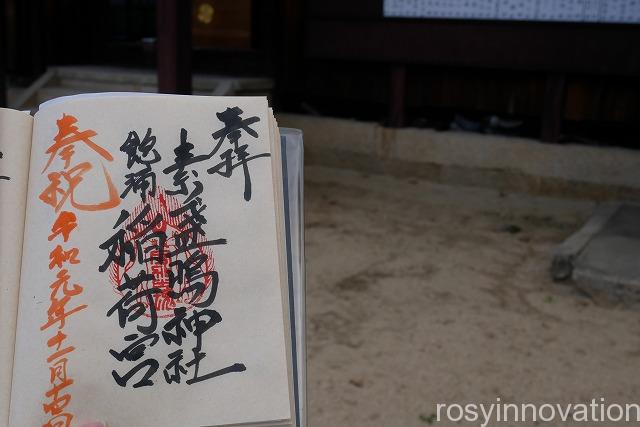 奉拝
素盞嗚神社
飽浦
稲荷宮
奉祝
令和元年十一月十四日
rosyinnovation